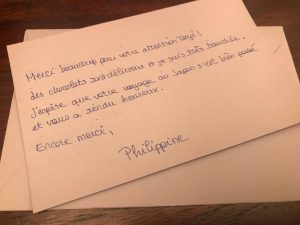 Merci beaucoup pour votre attention !
des chocolats sont délicieux et je suis très touchée.
J'espère que votre voyage au Japon s'est bien passé
et vous a rendu heureux.
Encore merci,
Philippine